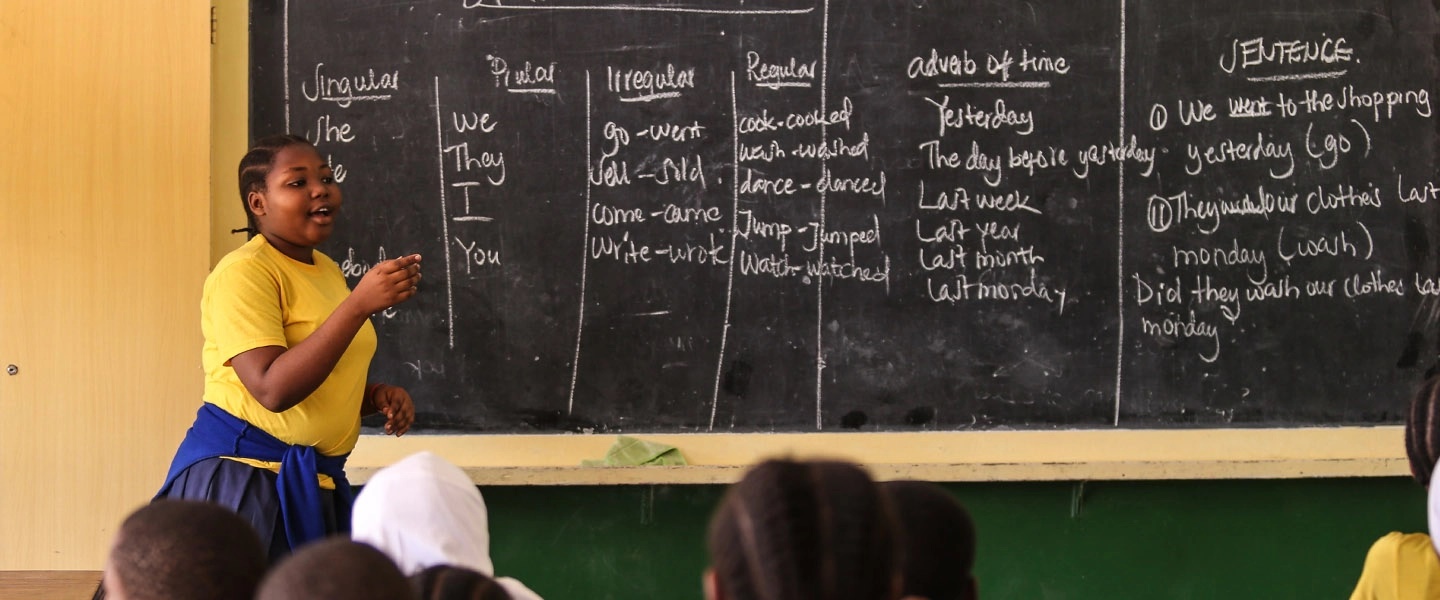 Singular
She
Plural
We
They
I
You
Irregular
go - went
sell - sold
come - came
Write - wrote
Regular
cook - cooked
wash - washed
dance - danced
Jump - Jumped
Watch - watched
adverb of time
Yesterday
The day before yesterday
Last week
Last year
Last month
Last monday
SENTENCE.
① We went to the shopping
yesterday (go)
⑪ They washed our clothes Last
monday (wash)
Did they wash our clothes
monday